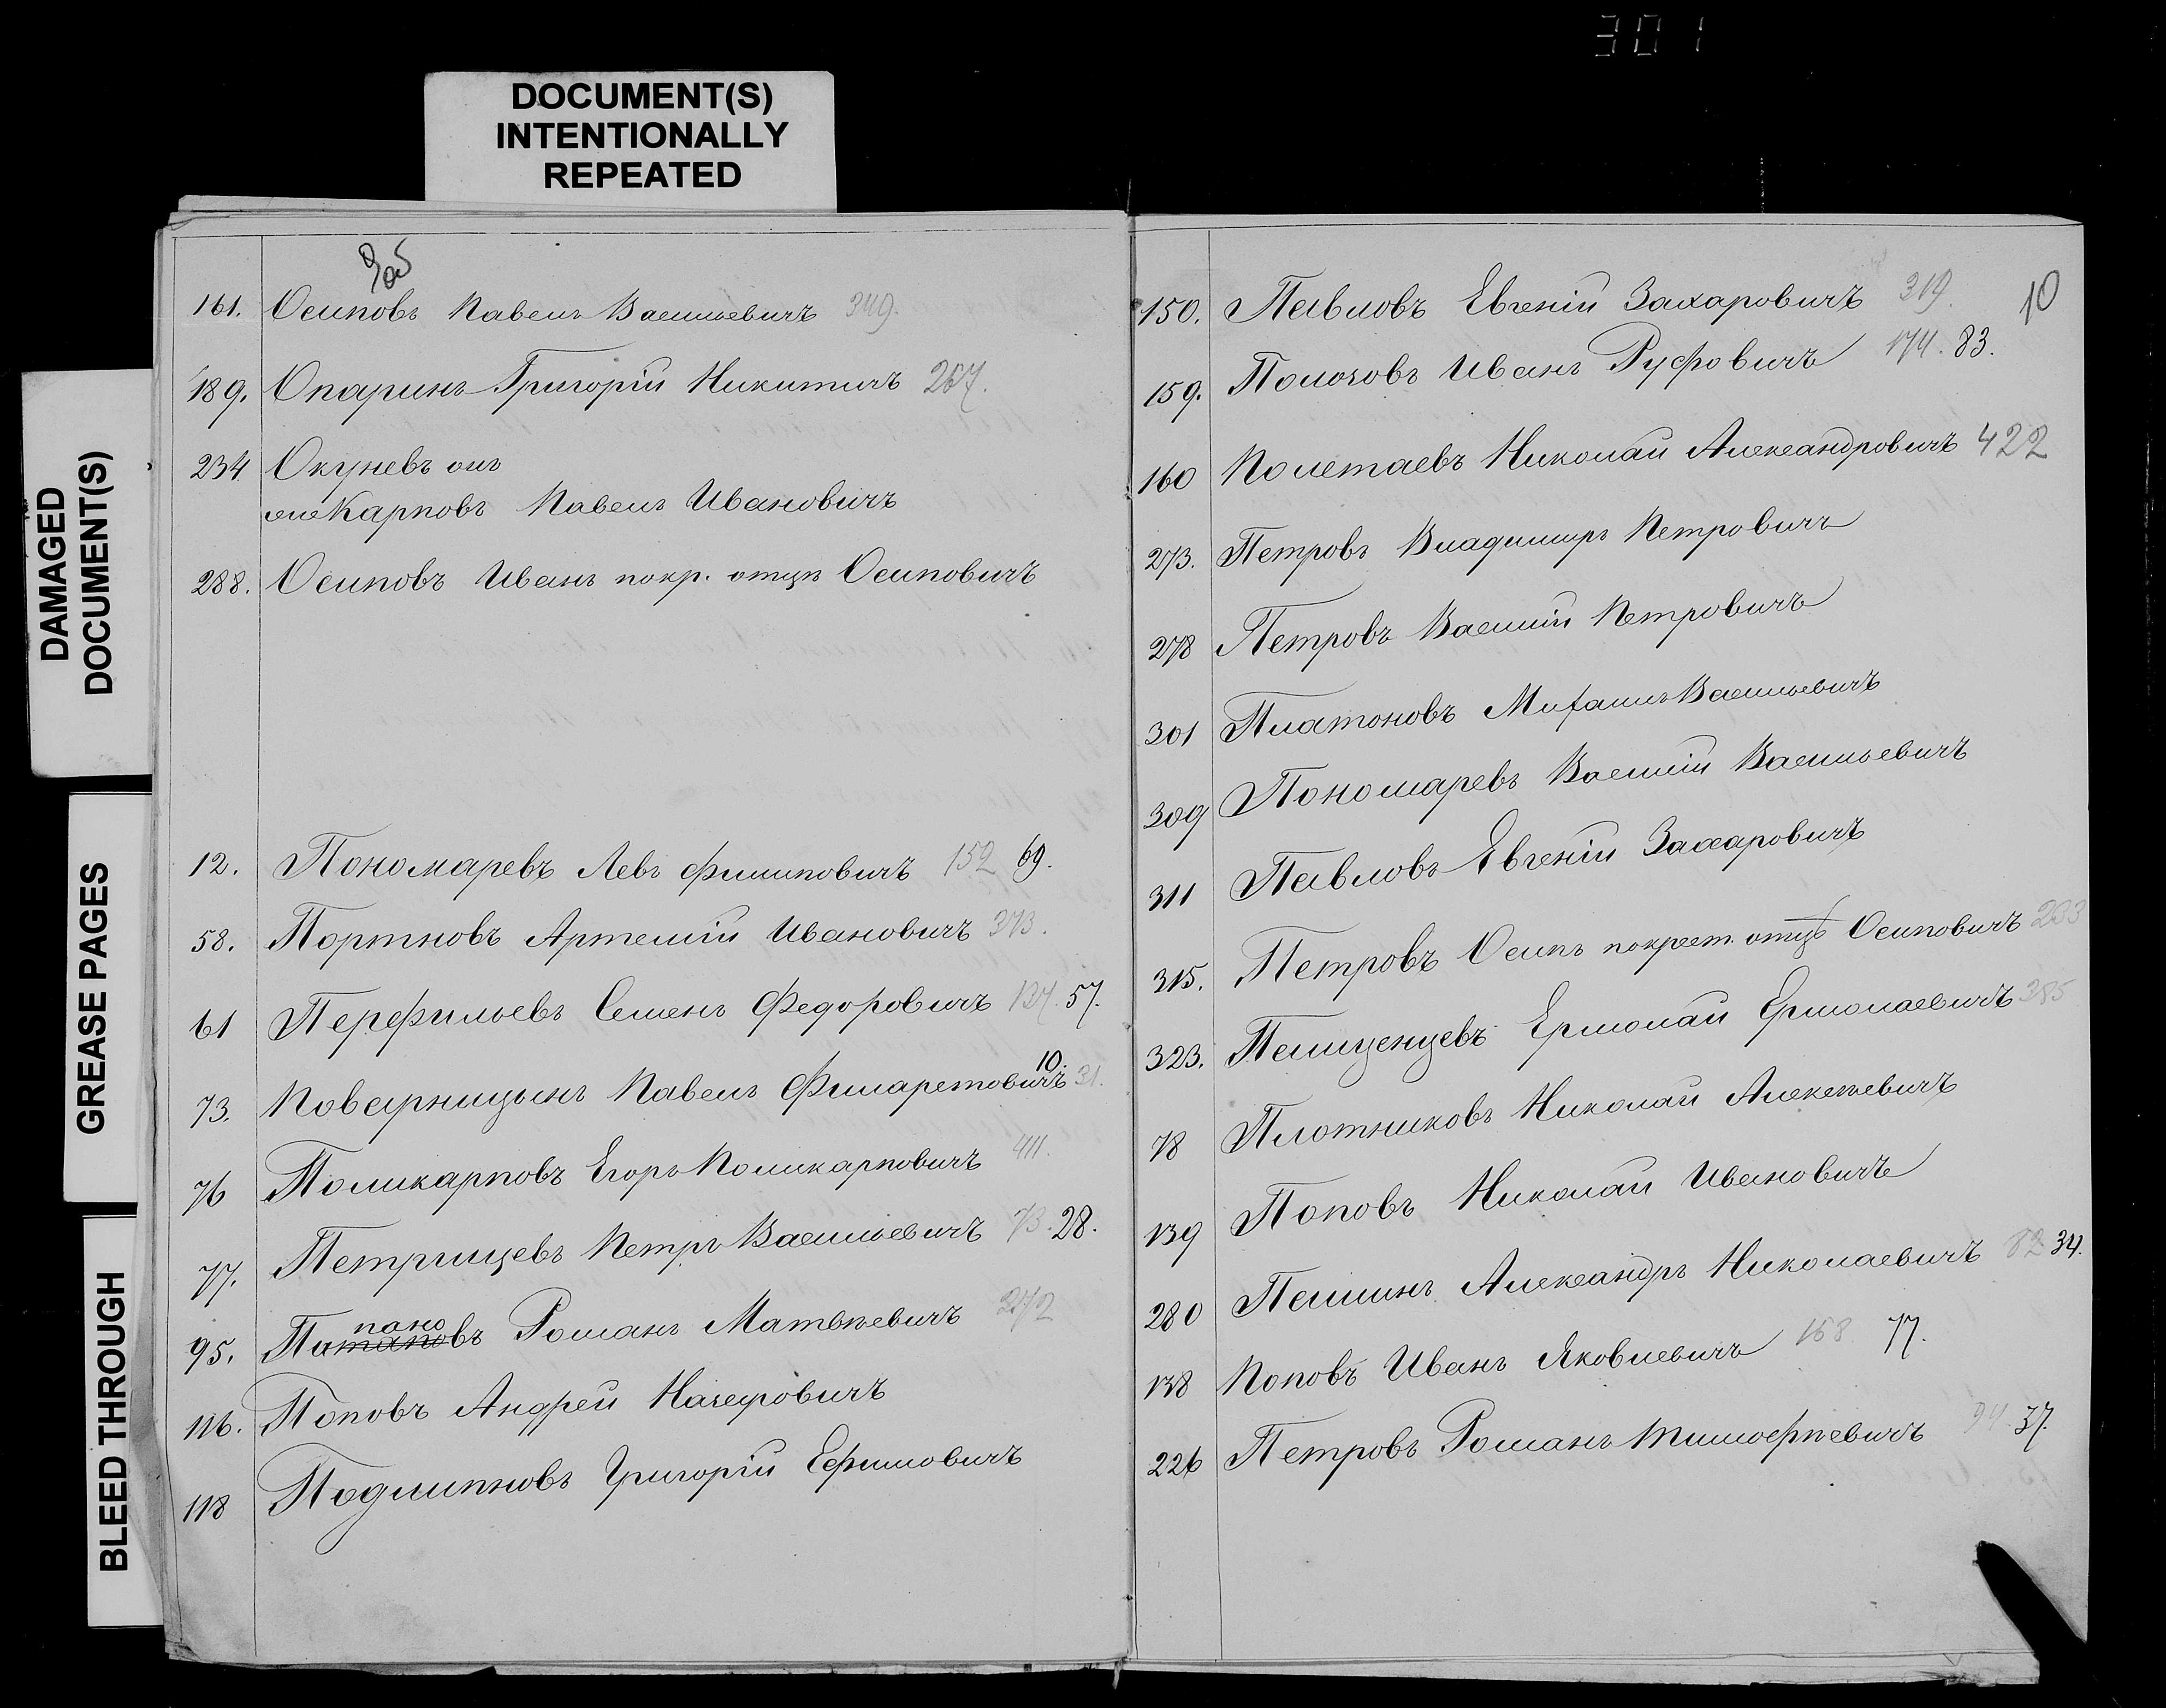 301
DOCUMENT(S)
INTENTIONALLY
REPEATED
DAMAGED
DOCUMENT(S)
GREASE PAGES
BLEED THROUGH
161. Осиповъ Павелъ Васильевичъ 349.
189. Опаринъ Григорій Никитичъ 267.
234 Окуневъ онъ
же Карповъ Павелъ Ивановичъ
288. Осиповъ Иванъ покр. отцъ Осиповичъ
12. Пономаревъ Левъ Филиповичъ 152 69.
58. Портновъ Артемій Ивановичъ 373.
61 Перфильевъ Семенъ Федоровичъ 137. 57.
10.
73. Поварницынъ Павелъ Филаретовичъ 31.
76 Поликарповъ Егоръ Поликарповичъ 411.
77. Петрищевъ Петръ Васильевичъ 73. 28.
пано
95. Патановъ Романъ Матвѣевичъ 272
116. Поповъ Андрей Назаровичъ
118 Подлипновъ Григорій Ефимовичъ
10
150. Павловъ Евгеній Захаровичъ 319.
159. Полозовъ Иванъ Руфовичъ 174. 83.
160 Полетаевъ Николай Александровичъ 422
273. Петровъ Владиміръ Петровичъ
278 Петровъ Василій Петровичъ
301 Платоновъ Михаилъ Васильевичъ
309 Пономаревъ Василій Васильевичъ
311 Павловъ Евгеній Захаровичъ
315. Петровъ Осипъ покрест. отцъ Осиповичъ 233
323. Ермолай Ермолаевичъ 385
78 Плотниковъ Николай Алексѣевичъ
139 Поповъ Николай Ивановичъ
280 Александръ Николаевичъ 82 34.
138 Поповъ Иванъ Яковлевичъ 158. 77.
226 Петровъ Романъ Тимофѣевичъ 94. 37.